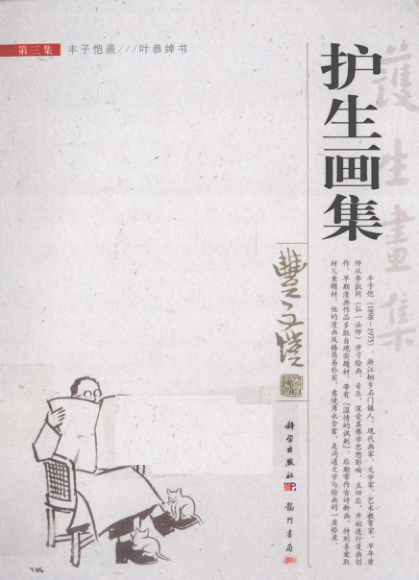 第三集 丰子恺画///叶恭绰书
護生畫集
护生画集
丰子恺（1898—1975），浙江桐乡石门镇人，现代画家，文学家，艺术教育家，早年曾
师从李叔同（弘一法师）学习绘画、音乐，深受其佛学思想影响。五四后，开始进行漫画创
作。早期漫画作品多取自现实题材，带有“温情的讽刺”，后期常作古诗新画，特别喜爱取
材儿童题材。他的漫画风格简易朴实，意境隽永含蓄，是沟通文学与绘画的一座桥梁。
豐子愷
科学出版社
龙门书局